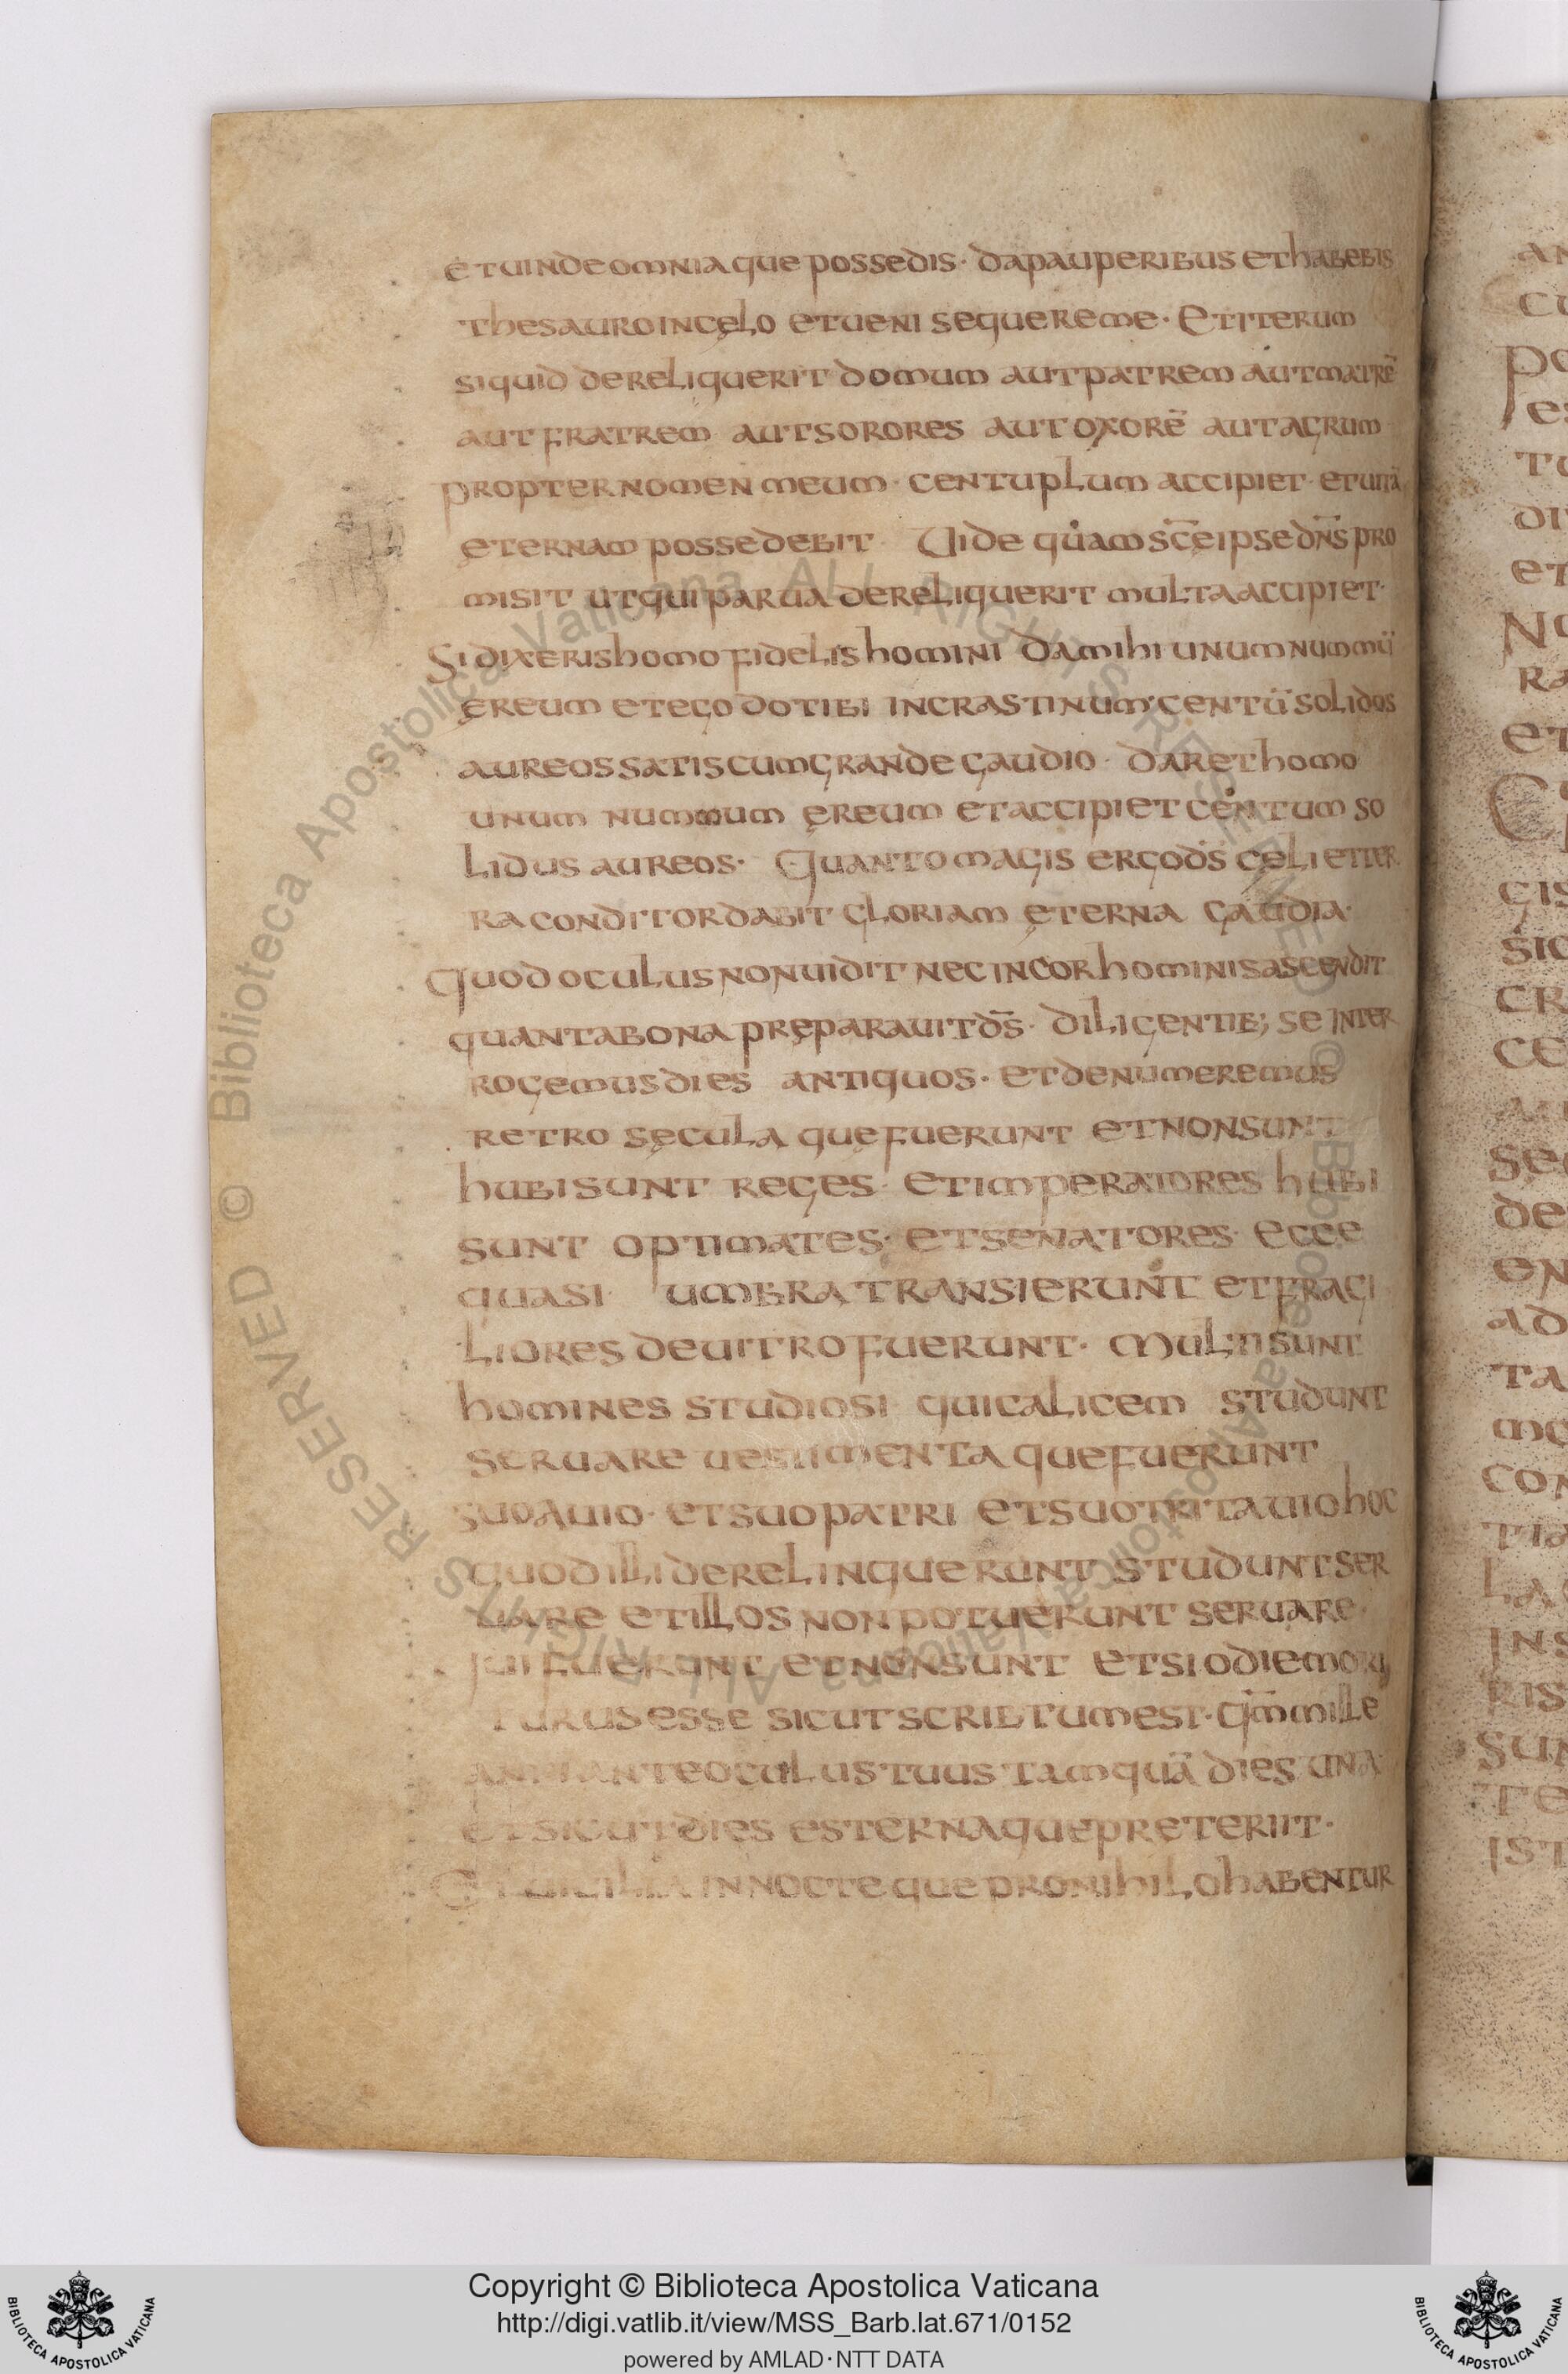 etuinde omnia que possedis· da pauperibus et habebis
thesauro in cęlo et ueni sequere me· Et iterum
siquid dereliquerit domum aut patrem aut matrē
aut fratrem aut sorores aut oxorē aut agrum
propter nomen meum· centuplum accipiet· et uitā
ęternam possedebit Uide quam sc̄e ipse dn̄s pro
misit ut qui parua dereliquerit multa accipiet·
Si dixeris homo fidelis homini da mihi unum nummū
ęreum et ego do tibi in crastinum centū solidos
aureos satis cum grande gaudio· daret homo
unum nummum ęreum et accipiet centum so
lidus aureos· Quanto magis ergo ds̄ cęli et ter
ra conditor dabit gloriam ęterna gaudia·
Quod oculus non uidit nec in cor hominis ascendit
quanta bona pręparauit ds̄· diligentib; se inter
rogemus dies antiquos· et denumeremus
retro sęcula quę fuerunt et non sunt
hubi sunt reges· et imperatores hubi
sunt optimates· et senatores· ecce
quasi umbra transierunt et fragi
liores de uitro fuerunt· Multi sunt
homines studiosi qui calicem studunt
seruare uestimenta que fuerunt
suo auio· et suo patri et suo tritauio hoc
quod illi derelinquerunt studunt ser
uare et illos non potuerunt seruare·
fuerunt et non sunt et si odie mori
turus esse sicut scribtum est· qm̄ mille
anni ante oculus tuus tamquā dies una
et sicut dies esterna que preteriit·
Et uigilia in nocte que pro nihilo habentur
Copyright © Biblioteca Apostolica Vaticana
http://digi.vatlib.it/view/MSS_Barb.lat.671/0152
powered by AMLAD·NTT DATA
BIBLIOTECA APOSTOLICA VATICANA
BIBLIOTECA APOSTOLICA VATICANA
© Biblioteca Apostolica Vaticana ALL RIGHTS RESERVED © Biblioteca Apostolica Vaticana ALL RIGHTS RESERVED